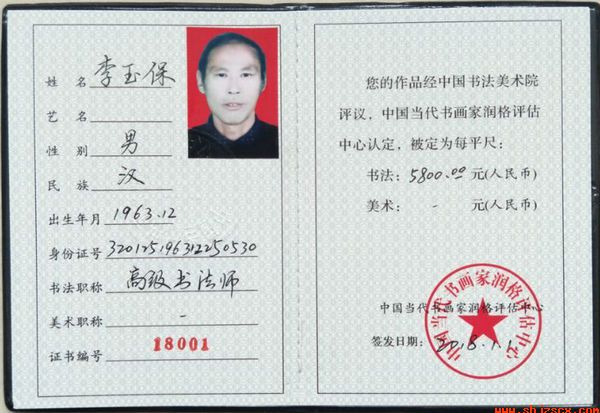 姓 名 李玉保
艺 名
性 别 男
民 族 汉
出生年月 1963.12
身份证号 320125196312250530
书法职称 高级书法师
美术职称 -
证书编号 18001
您的作品经中国书法美术院
评议，中国当代书画家润格评估
中心认定，被定为每平尺：
书法：5800.00 元(人民币)
美术： - 元(人民币)
中国当代书画家润格评估中心
签发日期：2018.1.1
中国当代书画家润格评估中心
www.shjzscx.com